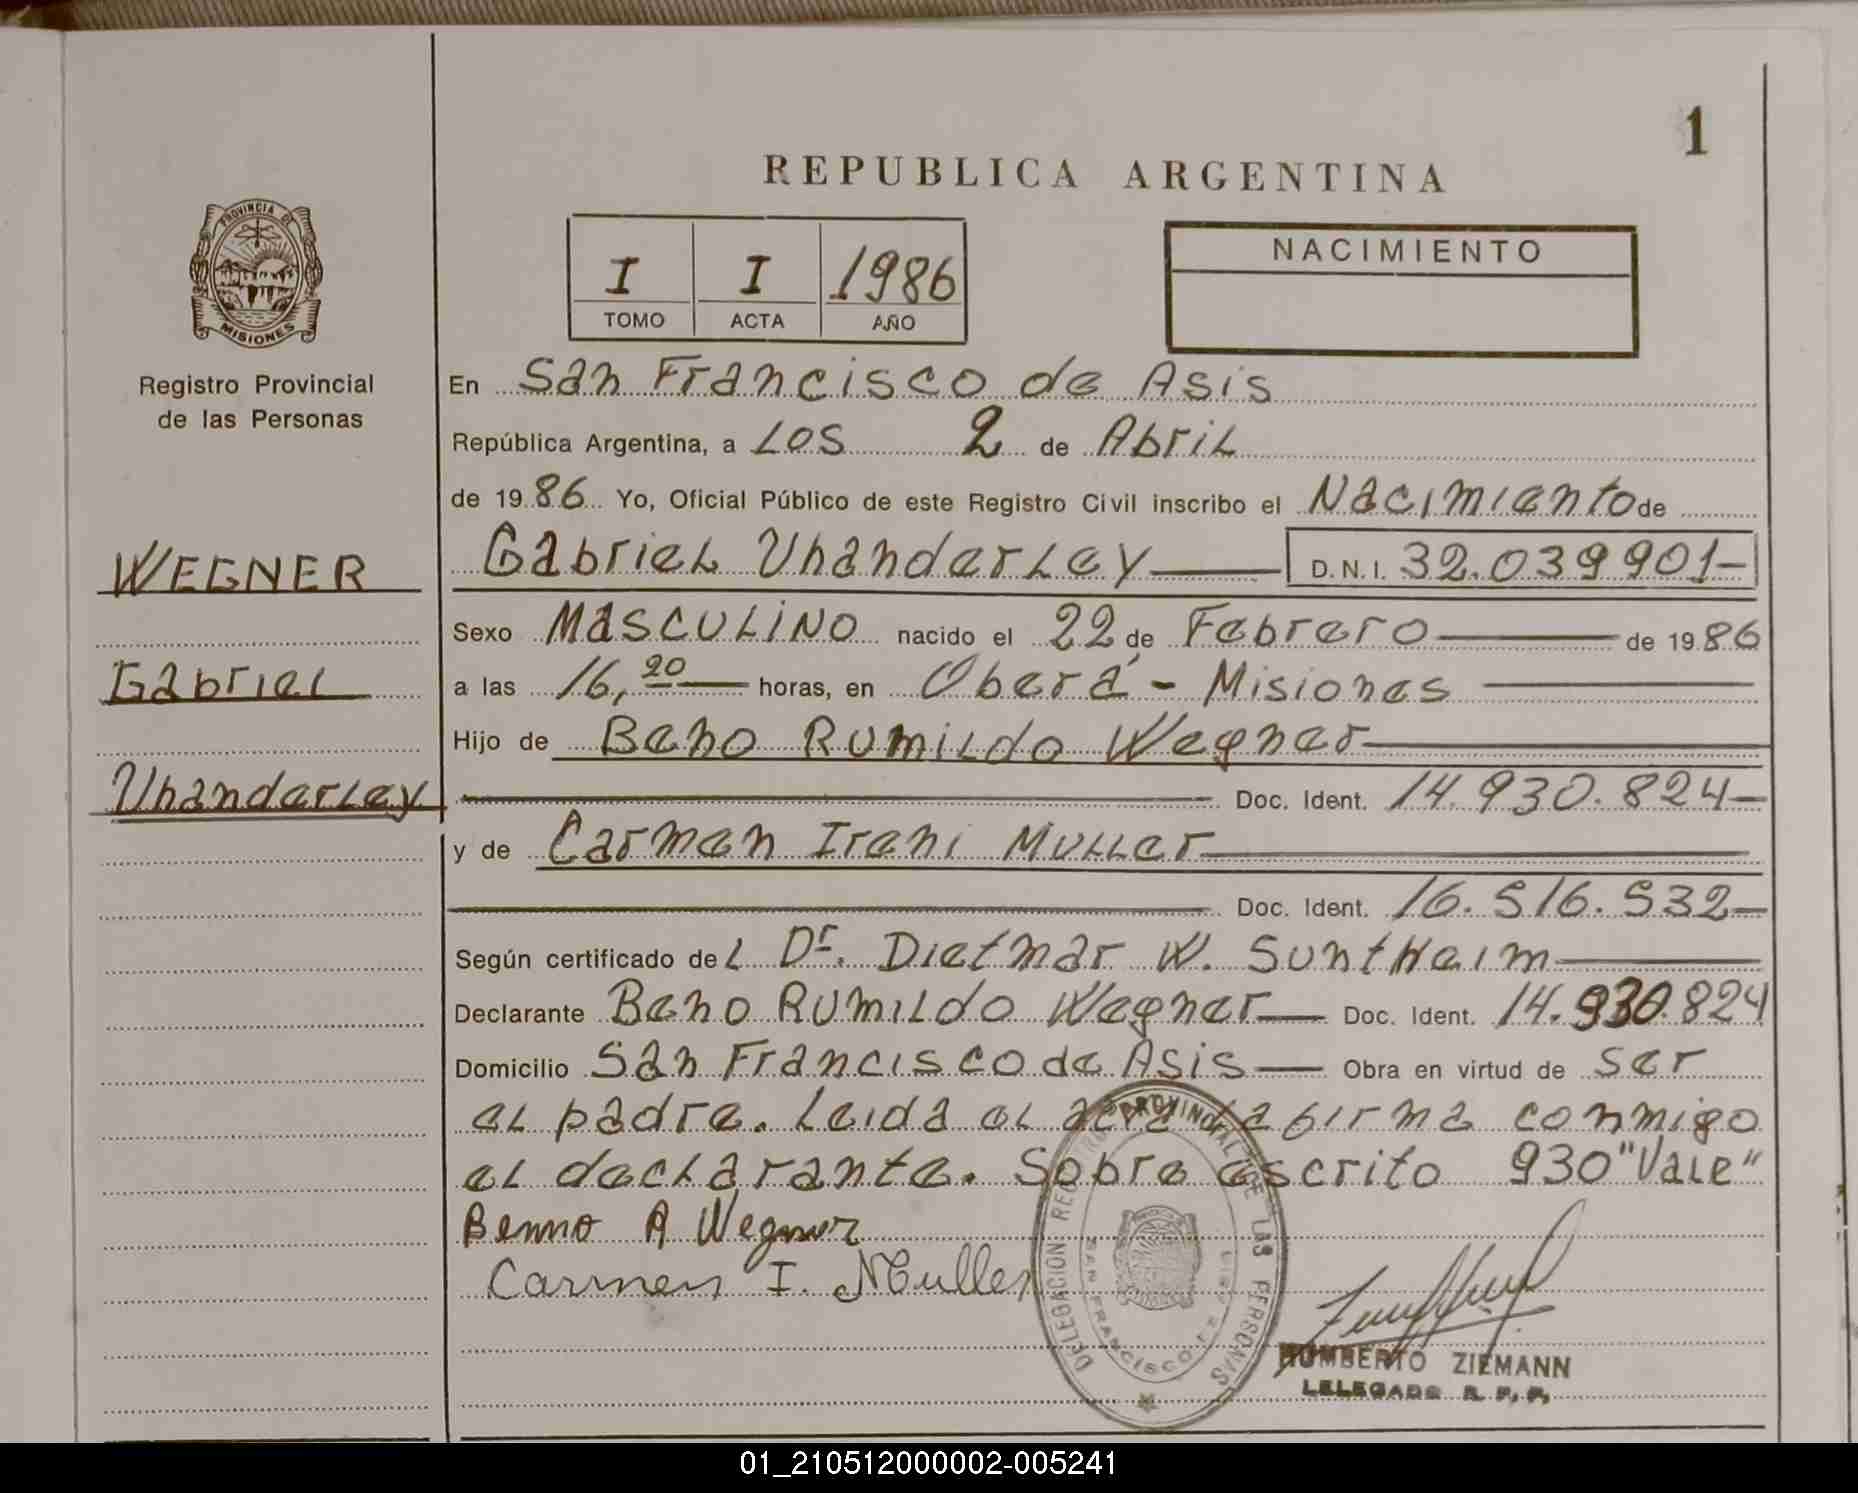 1
REPUBLICA ARGENTINA
PROVINCIA DE
MISIONES
Registro Provincial
de las Personas
I I 1986
TOMO ACTA AÑO
NACIMIENTO
En San Francisco de Asis
República Argentina, a Los 2 de Abril
de 1986 Yo, Oficial Público de este Registro Civil inscribo el Nacimiento de
WEGNER
Gabriel Vhanderley D.N.I. 32.039901-
Sexo Masculino nacido el 22 de Febrero de 1986
Gabriel
a las 16,20 horas, en Oberá - Misiones
Hijo de Beno Rumildo Wegner
Vhanderley
Doc. Ident. 14.930.824-
y de Carmen Ireni Muller
Doc. Ident. 16.516.532-
Según certificado del Dr. Dietmar W. Suntheim
Declarante Beno Rumildo Wegner Doc. Ident. 14.930.824
Domicilio San Francisco de Asis Obra en virtud de ser
el padre. Leida el acta la firma conmigo
el declarante. Sobre escrito 930 "Vale"
Benno R Wegner
Carmen I. Muller
DELEGACION REGISTRO PROVINCIAL DE LAS PERSONAS
SAN FRANCISCO DE ASIS
HUMBERTO ZIEMANN
LELEGADO R. P. P.
01_210512000002-005241